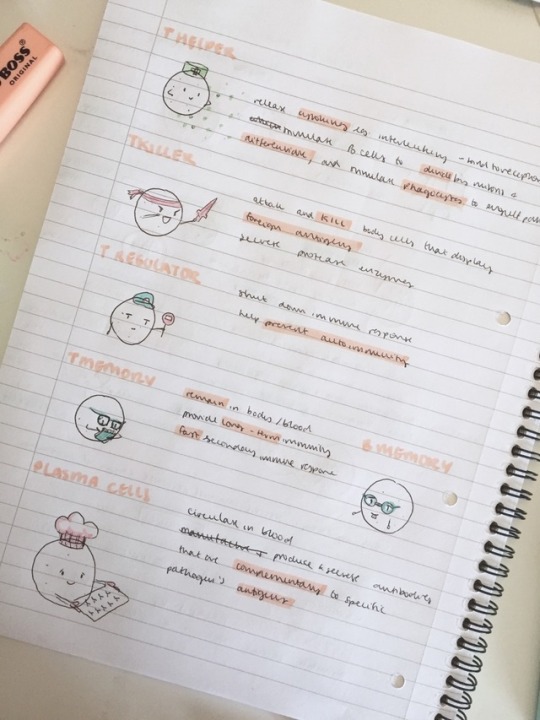 BOSS
ORIGINAL
T HELPER
release cytokines eg interleukins - bind to receptors
stimulate B cells to divide by mitosis &
differentiate, and stimulate phagocytes to engulf
T KILLER
attack and kill body cells that display
foreign antigens
secrete protease enzymes
T REGULATOR
shut down immune response
help prevent autoimmunity
T MEMORY
remain in bodies/blood
provide long-term immunity
fast secondary immune response
B MEMORY
PLASMA CELLS
circulate in blood
manufacture & produce & secrete antibodies
that are complementary to specific
pathogen's antigens